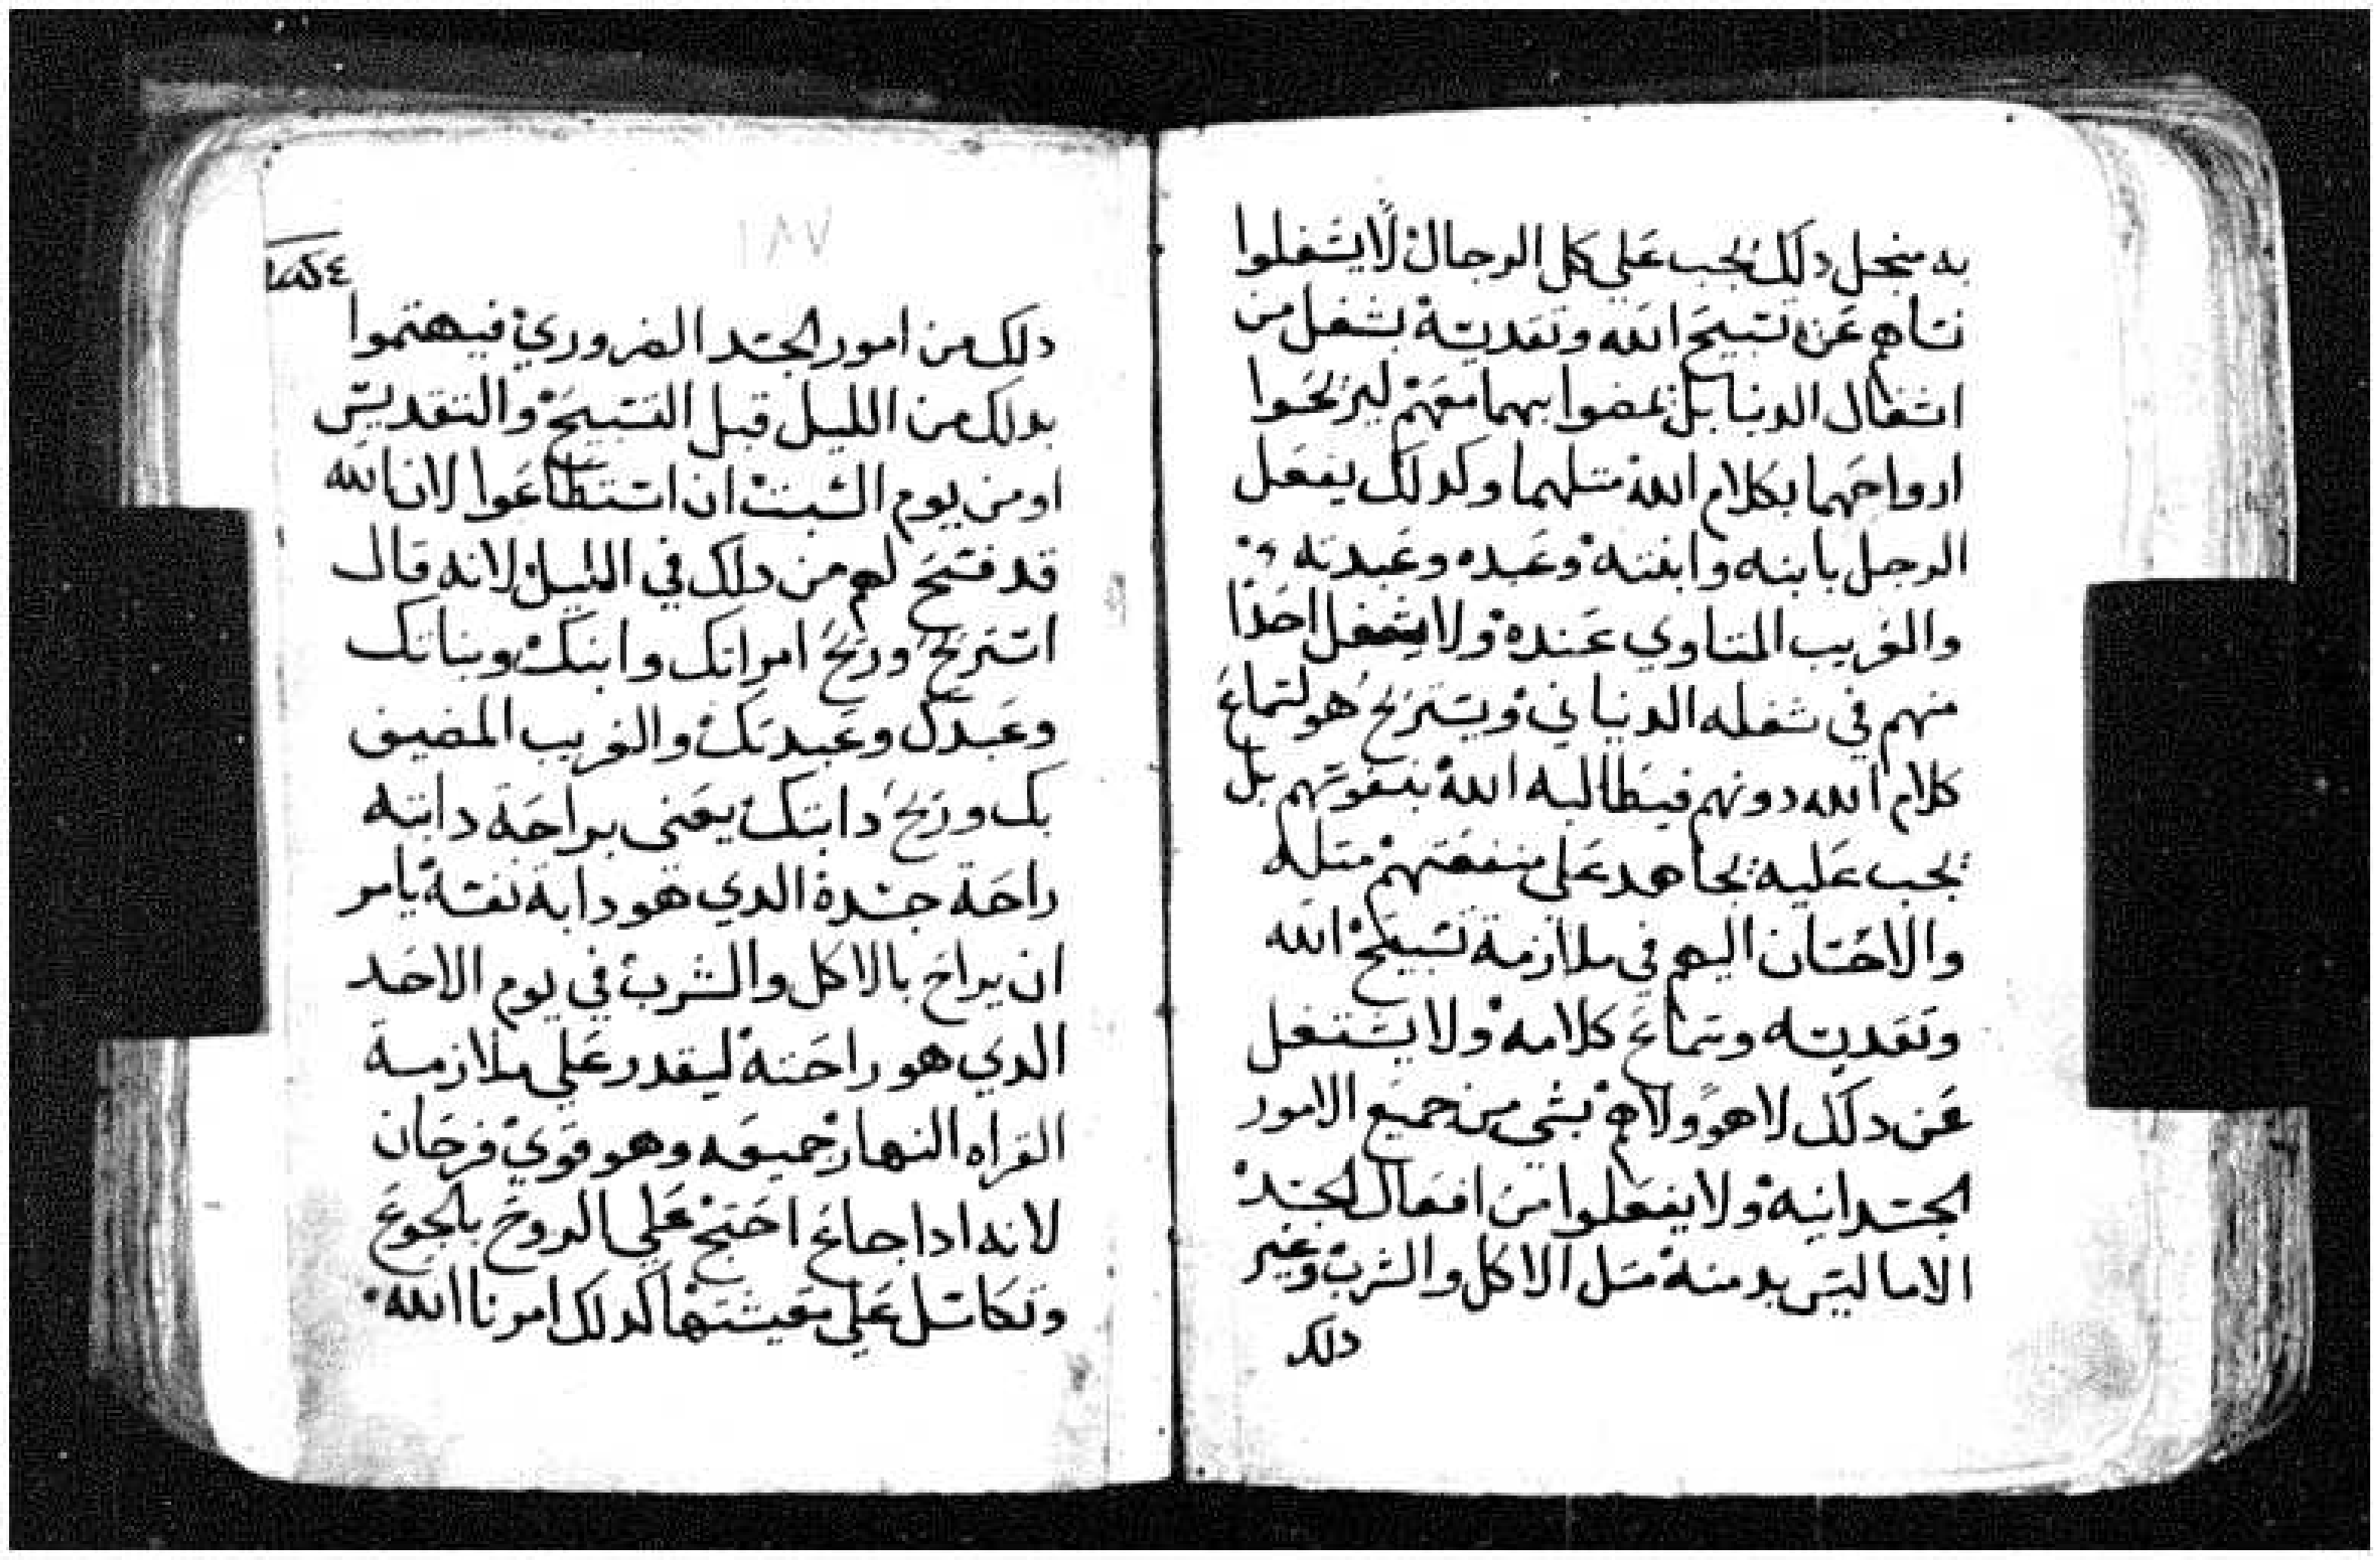 به منجل دلك يجب على كل الرجال لا يشغلوا
نساهم عن تسبيح الله وتقديسه بشغل من
اشغال الدنيا بل يمضوا بهما معهم ليربحوا
ارواحهما بكلام الله متلهما وكدلك يفعل
الرجل بابنه وابنته وعبده وعبدته
والغريب المتاوي عنده ولا يشغل احدا
منهم في شغله الدنياني ويستريح هو لسماع
كلام الله دونهم فيطالبه الله بنفوسهم بل
يجب عليه يجاهد على منفعتهم متله
والاحسان اليهم في ملازمة تسبيح الله
وتقديسه وسماع كلامه ولا يشتغل
عن دلك لا هو ولا هم بشي من جميع الامور
الجسدانيه ولا يفعلوا من افعال الجسد
الا ما ليس بد منه متل الاكل والشرب وغير
دلك
١٨٧
دلك من امور الجسد الضروري فيهتموا
بدلك من الليل قبل التسبيح والتقديس
او من يوم السبت ان استطاعوا لان الله
قد فسح لهم من دلك في الليل لانه قال
استريح وريح امراتك وابنك وبناتك
وعبدك وعبدتك والغريب المضيف
بك وريح دابتك يعني براحة دابته
راحة جسده الدي هو دابة نفسه يامر
ان يراح بالاكل والشرب في يوم الاحد
الدي هو راحته ليقدر على ملازمة
القراه النهار جميعه وهو قوي فرحان
لانه ادا جاع احتج على الروح بالجوع
وتكاسل على معيشتها لدلك امرنا الله